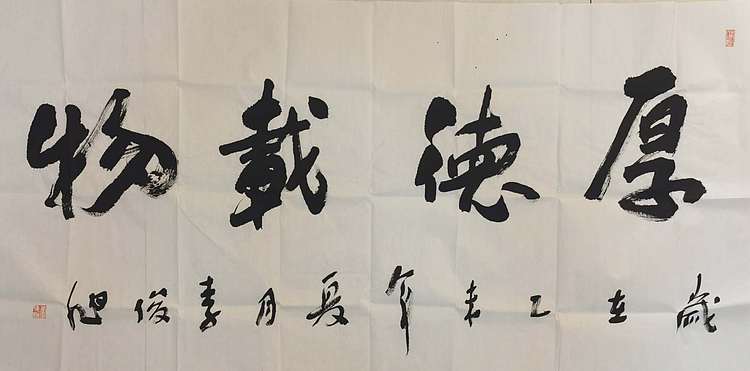 厚德載物
歲在乙未年夏月李俊旭